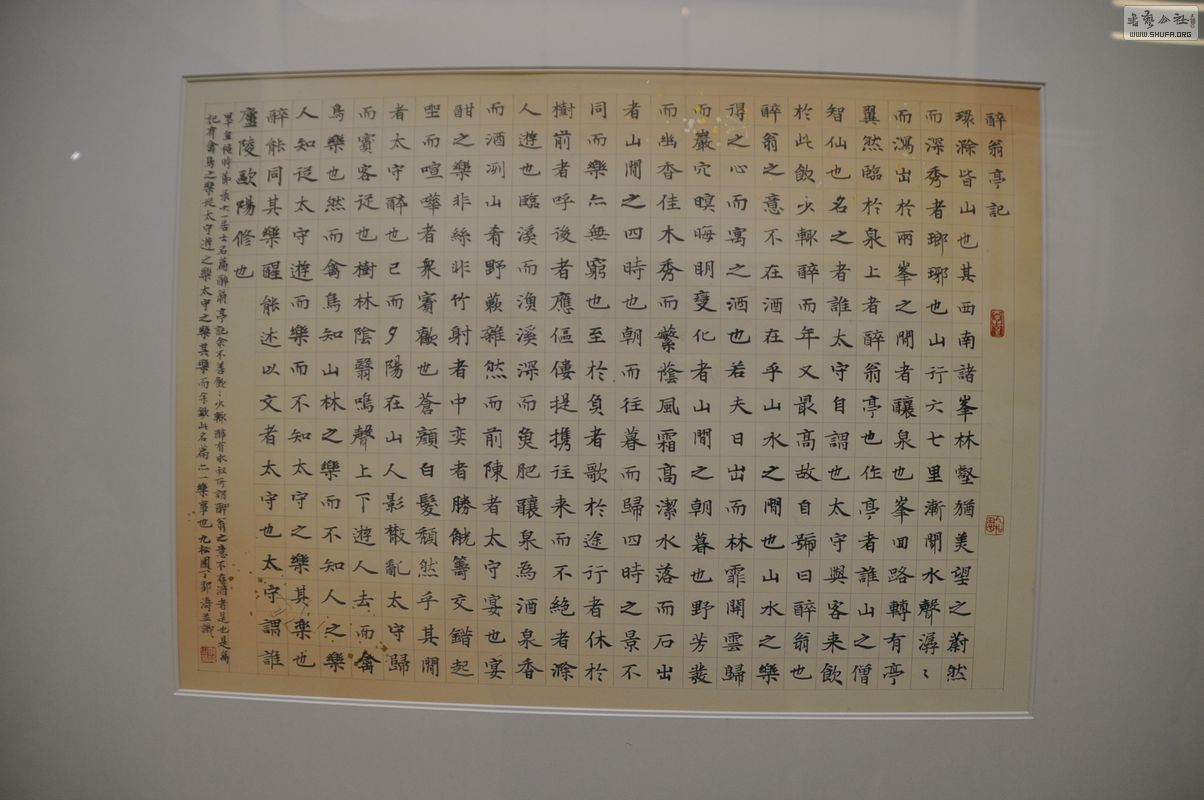 醉翁亭記
環滁皆山也其西南諸峯林壑猶美望之蔚然
而深秀者瑯琊也山行六七里漸聞水聲潺〻
而瀉出於兩峯之間者釀泉也峯回路轉有亭
翼然臨於泉上者醉翁亭也作亭者誰山之僧
智仙也名之者誰太守自謂也太守與客来飲
於此飲少輒醉而年又最高故自號曰醉翁也
醉翁之意不在酒在乎山水之間也山水之樂
得之心而寓之酒也若夫日出而林霏開雲歸
而巖穴暝晦明變化者山間之朝暮也野芳發
而幽香佳木秀而繁陰風霜高潔水落而石出
者山間之四時也朝而往暮而歸四時之景不
同而樂亦無窮也至於負者歌於途行者休於
樹前者呼後者應傴僂提攜往来而不絕者滁
人遊也臨溪而漁溪深而魚肥釀泉為酒泉香
而酒冽山肴野蔌雜然而前陳者太守宴也宴
酣之樂非絲非竹射者中奕者勝觥籌交錯起
坐而喧嘩者衆賓歡也蒼顏白髮頹然乎其間
者太守醉也已而夕陽在山人影散亂太守歸
而賓客從也樹林陰翳鳴聲上下遊人去而禽
鳥樂也然而禽鳥知山林之樂而不知人之樂
人知從太守遊而樂而不知太守之樂其樂也
醉能同其樂醒能述以文者太守也太守謂誰
廬陵歐陽修也
居士名篇醉翁亭記余不善飲〻少輒醉有水叔所謂醉翁之意不在酒者是也是篇
記有禽鳥之樂從太守遊之樂太守之樂其樂而余錄此名篇亦一樂事也九松園丁鄧濤並識
書藝公社
WWW.SHUFA.ORG